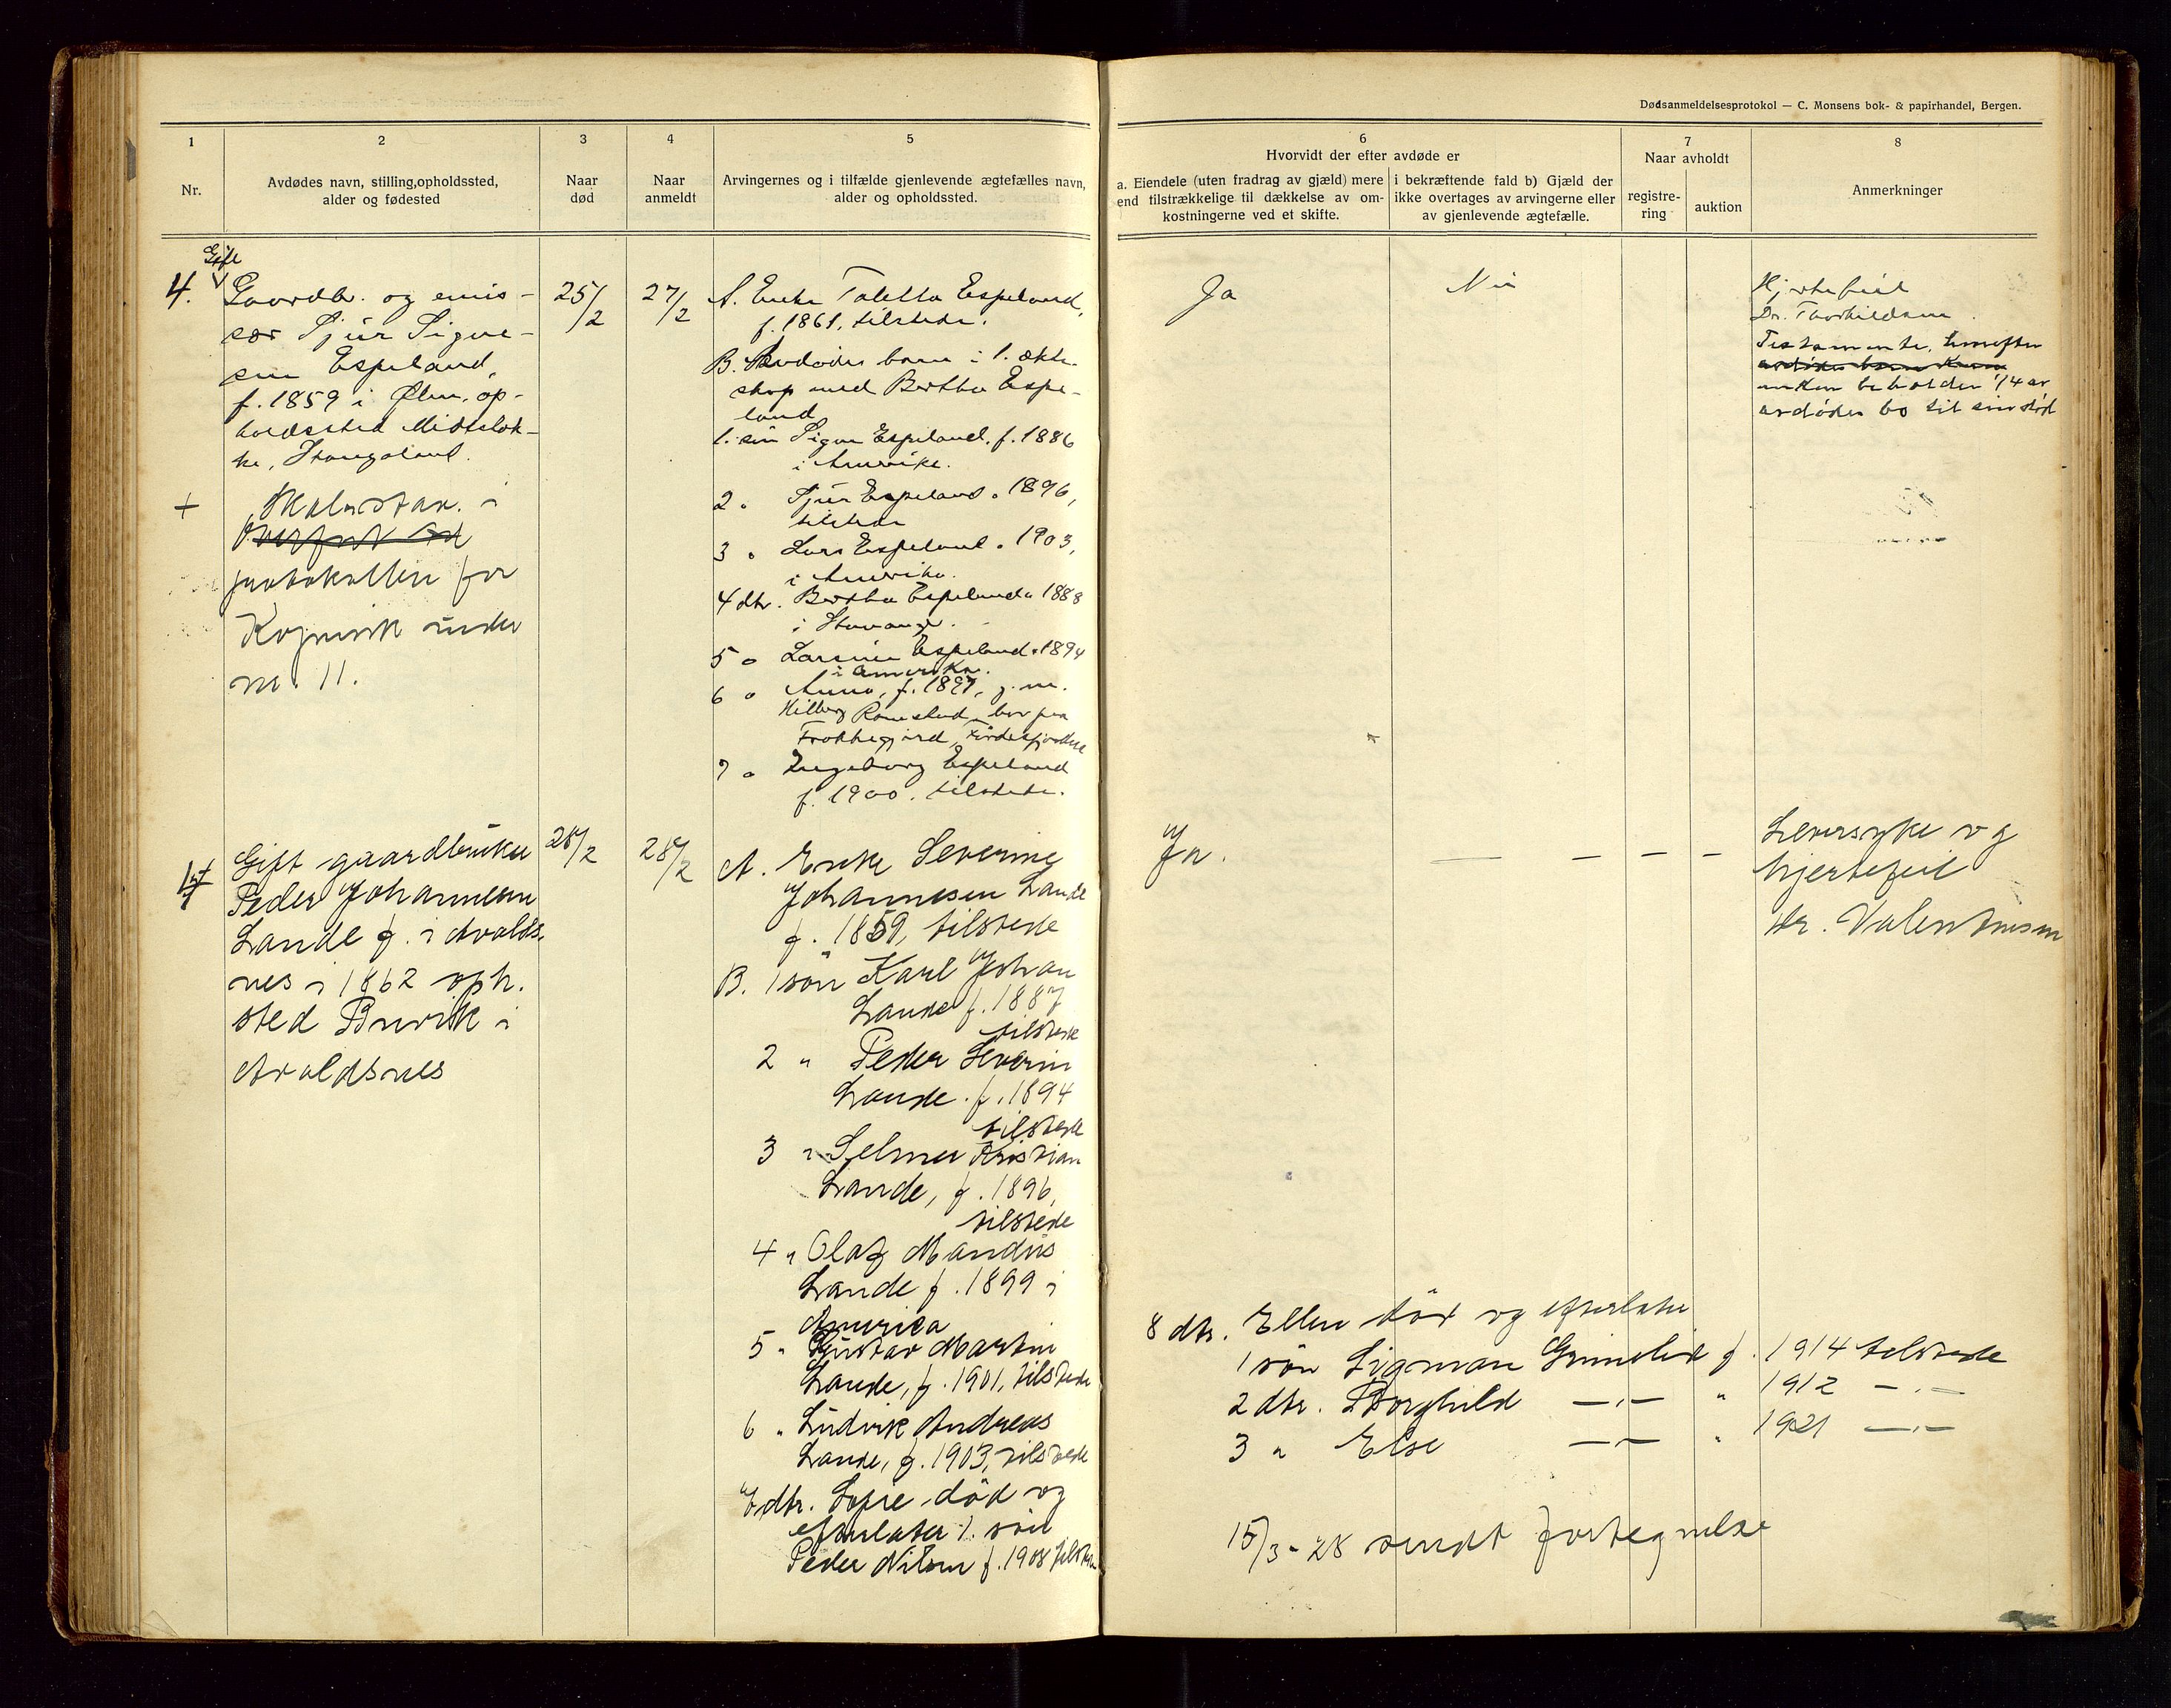 Dødsanmeldelsesprotokol — C. Monsens bok- & papirhandel, Bergen.
1
Nr.
2
Avdødes navn, stilling, opholdssted,
alder og fødested
3
Naar
død
4
Naar
anmeldt
5
Arvingernes og i tilfælde gjenlevende ægtefælles navn,
alder og opholdssted.
6
Hvorvidt der efter avdøde er
a. Eiendele (uten fradrag av gjæld) mere
end tilstrækkelige til dækkelse av om-
kostningerne ved et skifte.
i bekræftende fald b) Gjæld der
ikke overtages av arvingerne eller
av gjenlevende ægtefælle.
7
Naar avholdt
registre-
ring
auktion
8
Anmerkninger
4.
Gift
Gaardbr. og emis-
sær Sjur Sigve-
sen Espeland,
f. 1859 i Ølen, op-
holdssted Midtslok-
ke,
+
protokollen for
Kopervik under
nr. 11.
25/2
27/2
A. Enke Taletta Espeland,
f. 1861, tilstede.
B. Avdødes barn i 1. ekte-
skap med Bertha Espe-
land
1. søn Sigve Espeland, f. 1886
i Amerika.
2 " Sjur Espeland " 1896,
tilstede
3 " Lars Espeland " 1903,
i Amerika.
4 dtr. Bertha Espeland " 1888
i Stavanger.
5 " Larsine Espeland " 1894
i Amerika.
6 " Anna, f. 1897, g. m.
bor paa
7 " Ingeborg Espeland
f. 1900. tilstede.
Ja
Nei
Hjertefeil
Dr. Thorkildsen
Testamente, hvorefter
enken beholder 1/4 av
avdødes bo til sin død
5
Gift gaardbruker
Peder Johannesen
Lande f. i Avalds-
nes i 1862 oph.
sted Burik i
Avaldsnes
28/2
28/2
A. Enke Severine
Johannesen Lande
f. 1859, tilstede
B. 1 søn Karl Johan
Lande f. 1887
tilstede
2 " Peder Severin
Lande. f. 1894
tilstede
3 " Selmer Kristian
Lande, f. 1896,
tilstede
4 " Olaf Mandius
Lande f. 1899 i
America
5 " Gustav Martin
Lande, f. 1901, tilstede
6 " Ludvik Andreas
Lande, f. 1903, tilstede
7 dtr. Sofie død og
efterlater 1. søn
Peder Nilsen f. 1908 tilstede
Ja.
— — — —
Leversyke og
hjertefeil
dr. Valentinsen
8 dtr. Ellen død og efterlater
1 søn Sigman Grindheim f. 1914 tilstede
2 dtr. Borghild —"— " 1912 —"—
3 " Else —"— " 1921 —"—
15/3-28 sendt fortegnelse